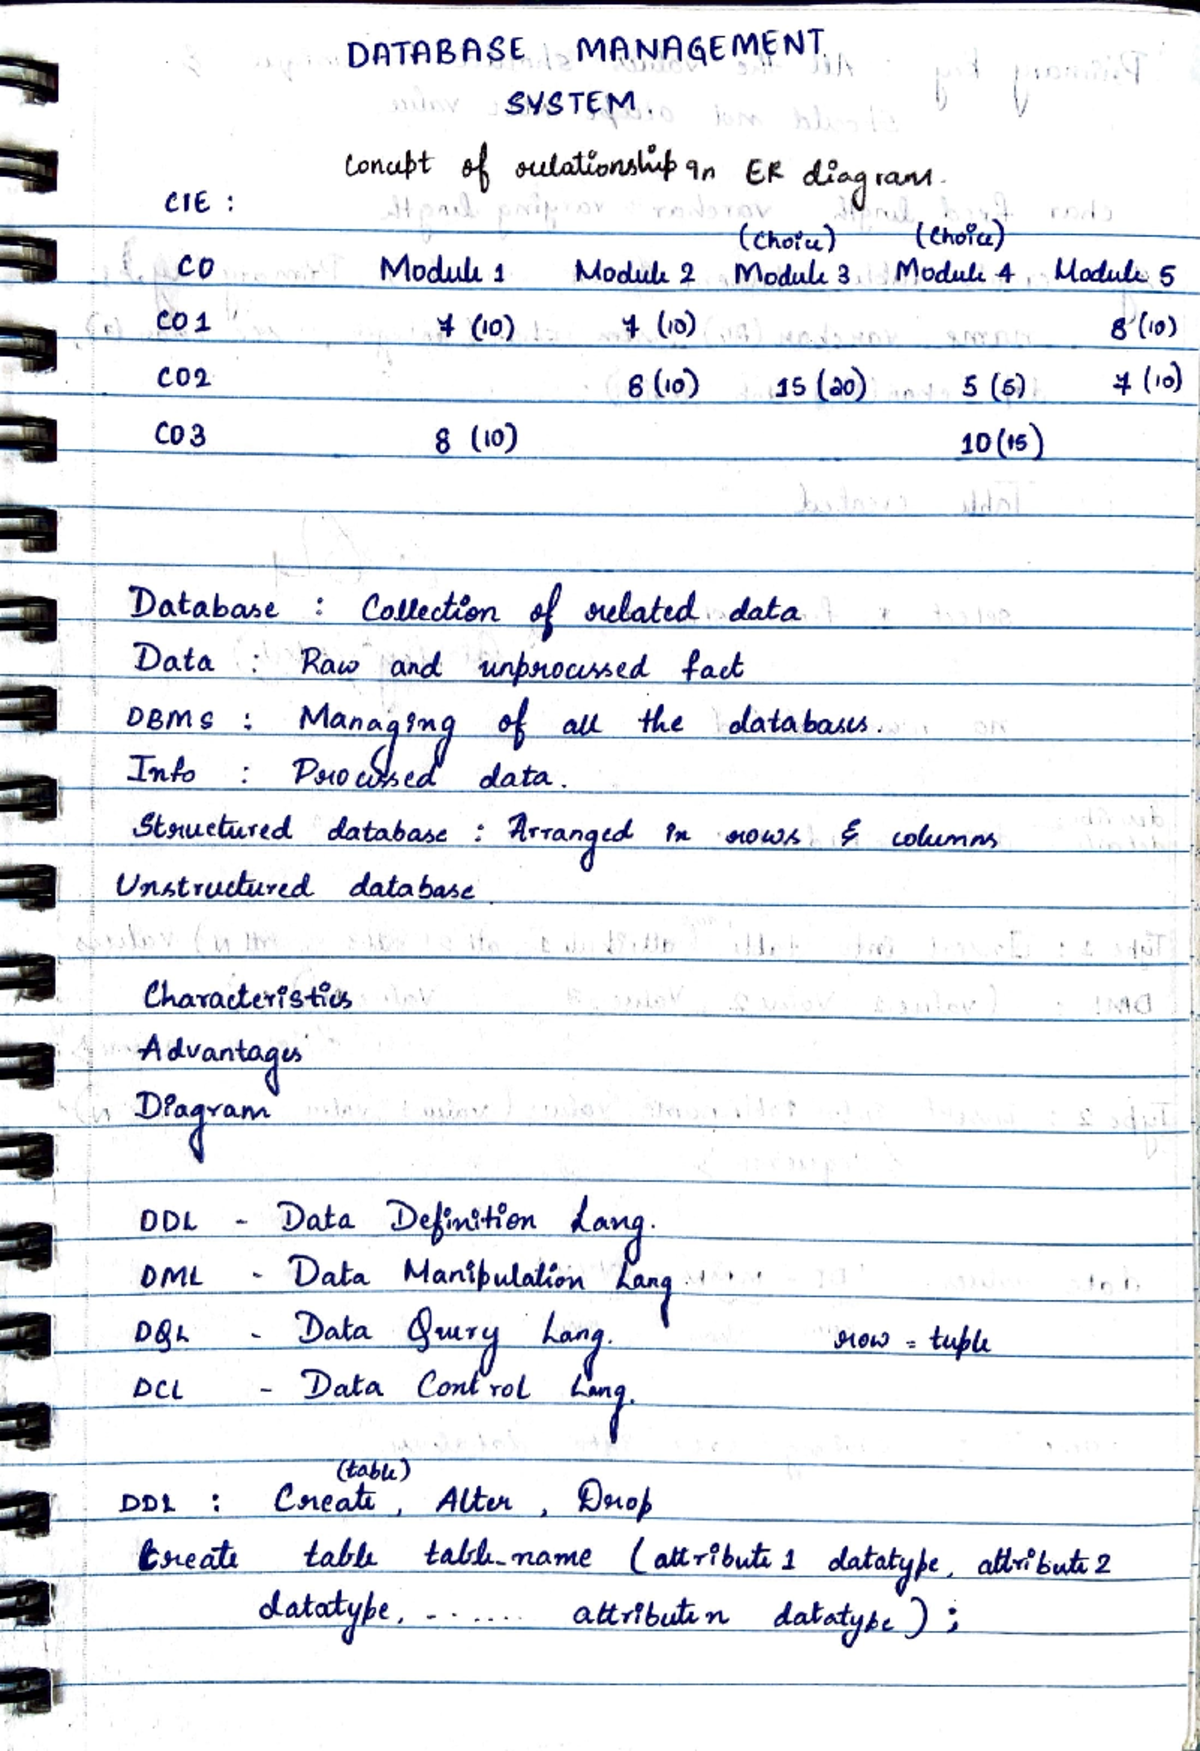 DATABASE MANAGEMENT
SYSTEM.
Concept of relationship in ER diagram.
CIE :
(Choice) (Choice)
CO Module 1 Module 2 Module 3 Module 4 Module 5
CO1 7 (10) 7 (10) 8 (10)
CO2 8 (10) 15 (20) 5 (5) 7 (10)
CO3 8 (10) 10 (15)
Database : Collection of related data
Data : Raw and unprocessed fact
DBMS : Managing of all the databases.
Info : Processed data.
Structured database : Arranged in rows & columns
Unstructured database
Characteristics
Advantages
Diagram
DDL - Data Definition Lang.
DML - Data Manipulation Lang.
DQL - Data Query Lang. row = tuple
DCL - Data Control Lang.
(table)
DDL : Create, Alter, Drop
Create table table_name (attribute 1 datatype, attribute 2
datatype, - ...... attribute n datatype) ;